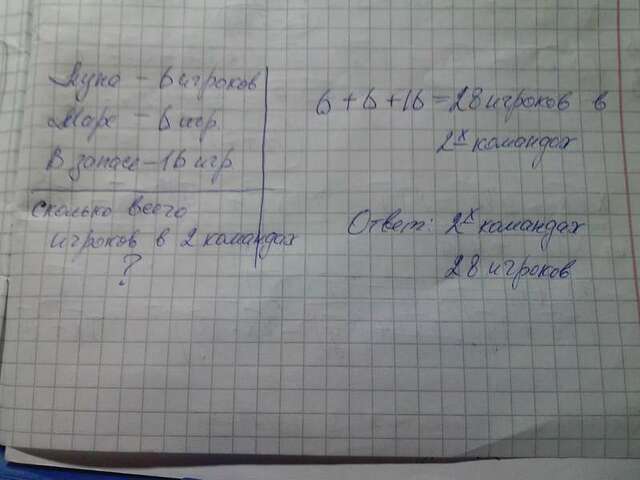 Луна - 6 игроков
Марс - 6 игр.
В запасе - 16 игр
сколько всего
игроков в 2 командах
?
6 + 6 + 16 = 28 игроков в
2х командах
Ответ: 2х командах
28 игроков